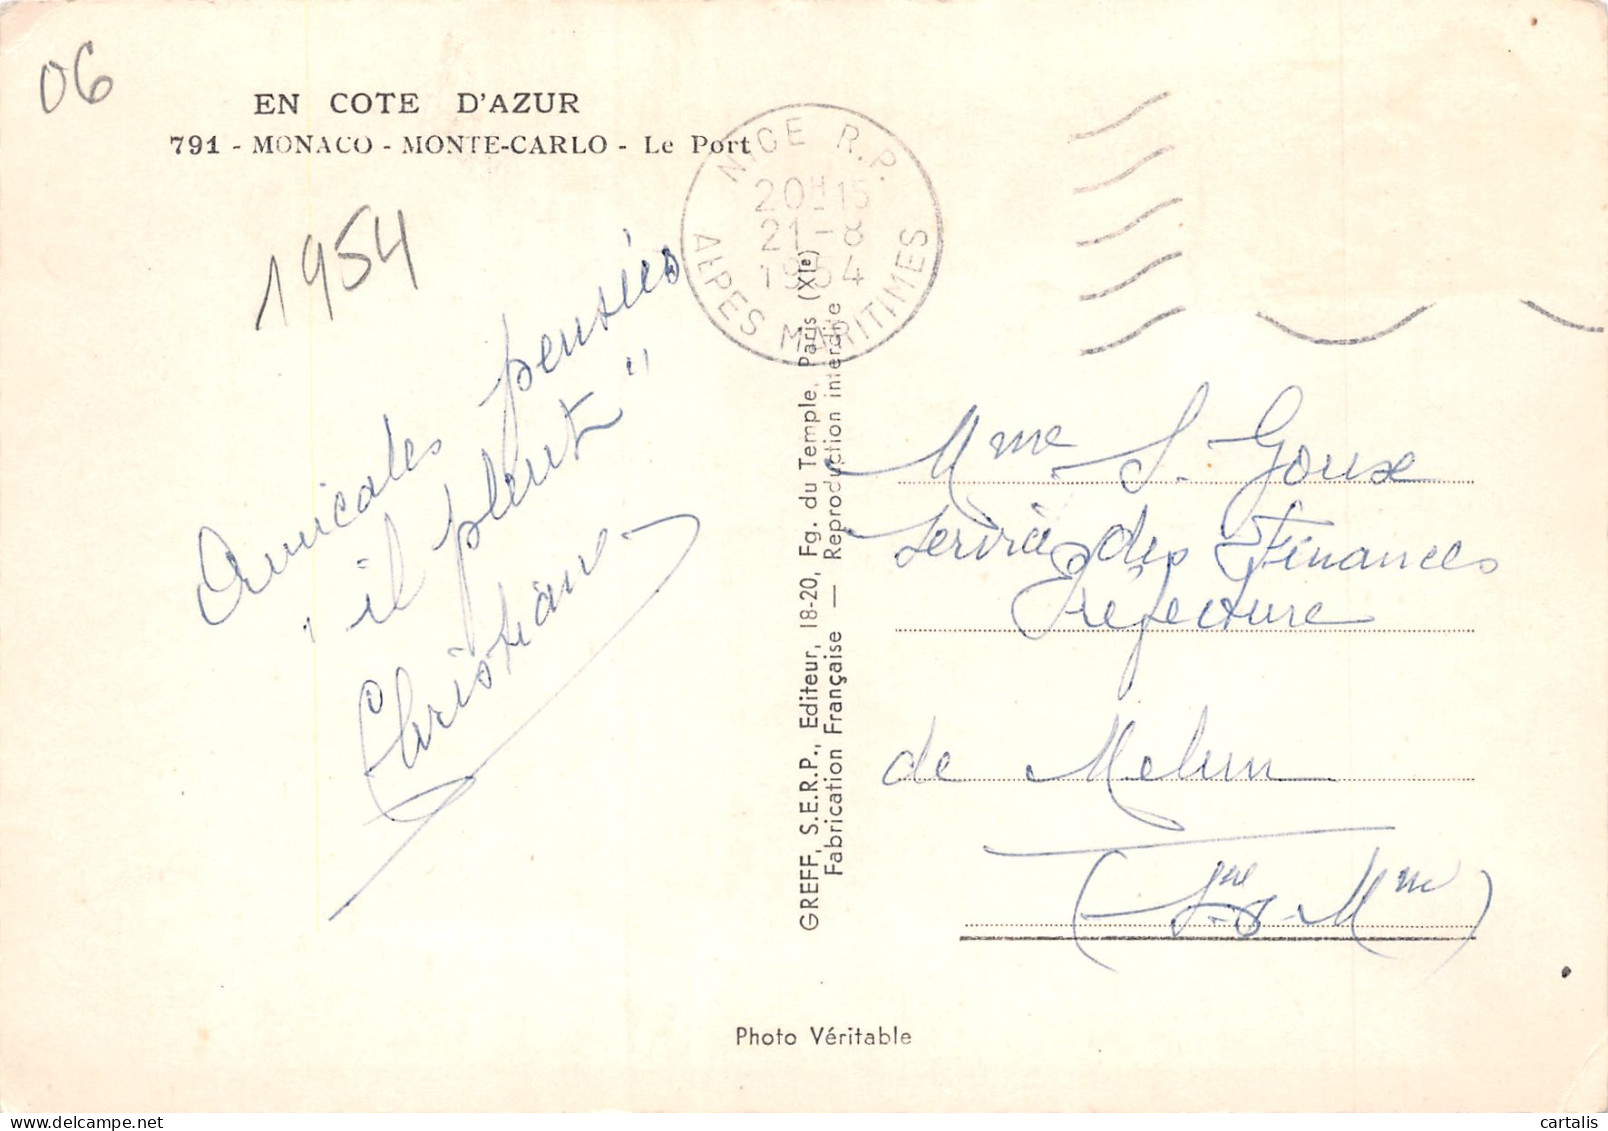 06
EN COTE D'AZUR
791 - MONACO - MONTE-CARLO - Le Port
1954
NICE R.P.
20H15
21-8
1954
ALPES MARITIMES
Amicales pensées
"il pleut"
Christiane
GREFF, S.E.R.P., Editeur, 18-20, Fg. du Temple, Paris (XIe)
Fabrication Française — Reproduction interdite
Mme S. Goux
Service des Finances
Préfecture
de Melun
(Sne &. Mne)
Photo Véritable
cartalis